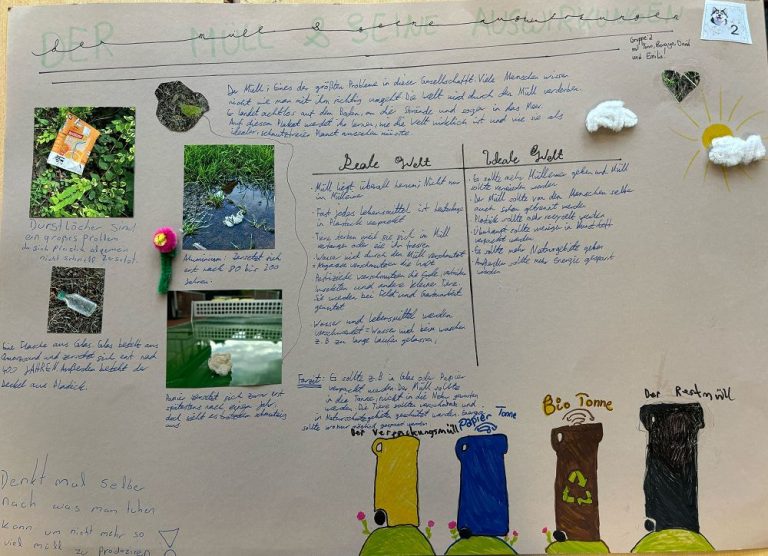 DER MÜLL & SEINE AUSWIRKUNGEN
der müll & seine auswirkungen
Gruppe 2
und Emilia
2
Der Müll: Eines der größten Probleme in dieser Gesellschafft. Viele Menschen wissen
nicht wie man mit ihm richtig umgeht. Die Welt wird durch den Müll verdorben.
Er landet achtlos auf dem Boden, an die Strände und sogar in das Meer.
Auf diesem Plakat werdet ihr lernen, wie die Welt wirklich ist und wie sie als
idealer, schmutzfreier Planet aussehen müsste.
Durstlöcher sind
ein großes Problem
da sich Plastik allgemein
nicht schnell zersetzt.
Aluminium: Zersetzt sich
erst nach 80 bis 200
Jahren.
Eine Flasche aus Glas. Glas besteht aus
und zersetzt sich erst nach
400 JAHREN. Außerdem besteht der
Deckel aus Plastik.
Papier zersetzt sich zwar erst
spätestens nach einem Jahr,
aus
Reale Welt
· Müll liegt überall herum: Nicht nur
in Mülleimer
· Fast jedes Lebensmittel ist
in Plastik verpackt
· Tiere sterben weil sie sich im Müll
verfangen oder sie ihn fressen
· Wasser wird durch den Müll verschmutzt
· Abgase verschmutzen die Luft
· Pestizide verschmutzen die Erde, vertreiben
Insekten und andere kleine Tiere.
Sie werden bei Feld und
genutzt
· Wasser und Lebensmittel werden
verschwendet = Wasser wird beim waschen
z.B zu lange laufen gelassen.
Ideale Welt
· Es sollte mehr Mülleimer geben und Müll
sollte vermieden werden
· Der Müll sollte von den Menschen selber
auch schon getrennt werden
· Plastik sollte mehr recycelt werden
· Überhaupt sollte weniger in Kunststoff
verpackt werden
· Es sollte mehr Naturgebiete geben
· Außerdem sollte mehr Energie gespart
werden
Fazit: Es sollte z.B in Glas oder Papier
verpackt werden. Der Müll sollte
in die Tonne, nicht in die Natur geworfen
werden. Die Tiere sollten und
in Naturschutzgebieten geschützt werden. Energie
sollte wo nur möglich gespart werden
Der Verpackungsmüll
Papier Tonne
Bio Tonne
Der Restmüll
Denkt mal selber
nach was man tuhen
kann um nicht mehr so
viel müll zu produzieren